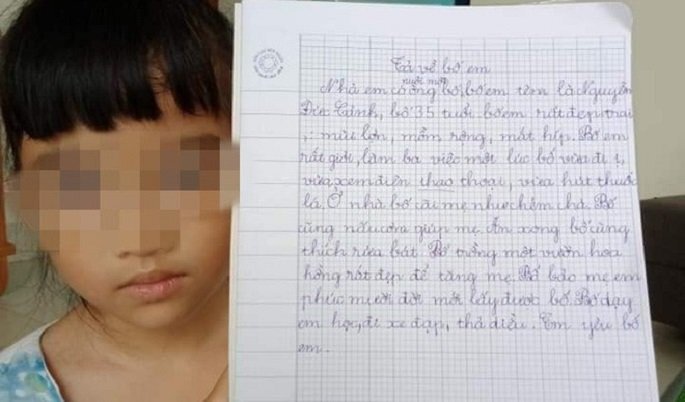 Tả về bố em
Nhà em có nuôi một ông bố, bố em tên là Nguyễn
Đức Cảnh, bố 35 tuổi bố em rất đẹp trai
,: mũi lớn, mồm rộng, mắt híp. Bố em
rất giỏi, làm ba việc một lúc bố vừa đi ị,
vừa xem điện thoại, vừa hút thuốc
lá. Ở nhà bố cãi mẹ như chém chả. Bố
cũng nấu cơm giúp mẹ. Ăn xong bố cũng
thích rửa bát. Bố trồng một vườn hoa
hồng rất đẹp để tặng mẹ. Bố bảo mẹ em
phúc mười đời mới lấy được bố. Bố dạy
em học, đi xe đạp, thả diều. Em yêu bố
em.